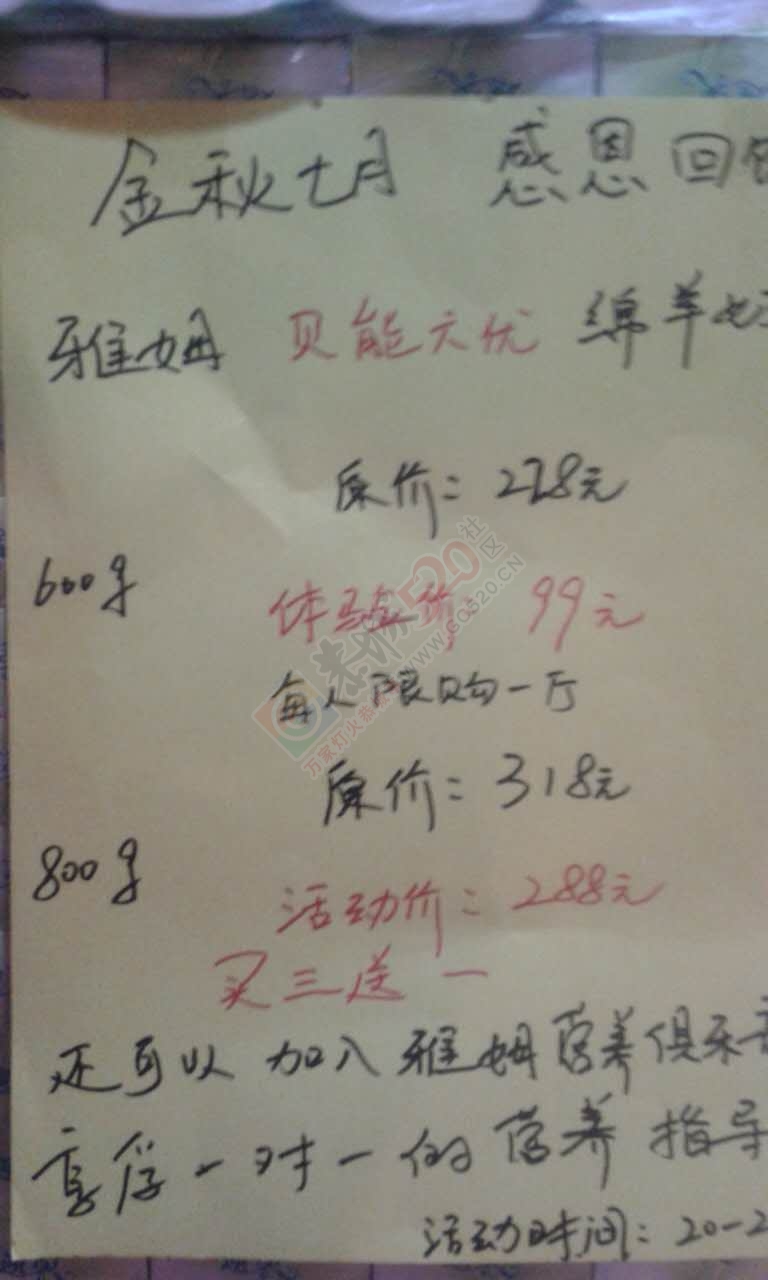 金秋七月 感恩回
雅姆 贝能六优 绵羊
原价：228元
600g
体验价：99元
每人限购一厅
原价：318元
800g
活动价：288元
买三送一
还可以加入雅姆营养俱乐
享受一对一的营养指导
活动时间：20-2
社区
520
WWW.GO520.CN
万家灯火恭